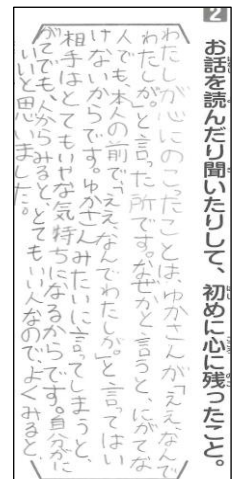 2
お話を読んだり聞いたりして、初めに心に残ったこと。
わたしが心にのこったことは、ゆかさんが「ええ、なんで
わたしが。」と言った所です。なぜかと言うと、にがてな
人でも、本人の前で、「ええ、なんでわたしが。」と言ってはい
けないからです。ゆかさんみたいに言ってしまうと、
相手はとてもいやな気持ちになるからです。自分がに
がてでも、人からみると、とてもいい人なので、よくみると、
いいと思いました。